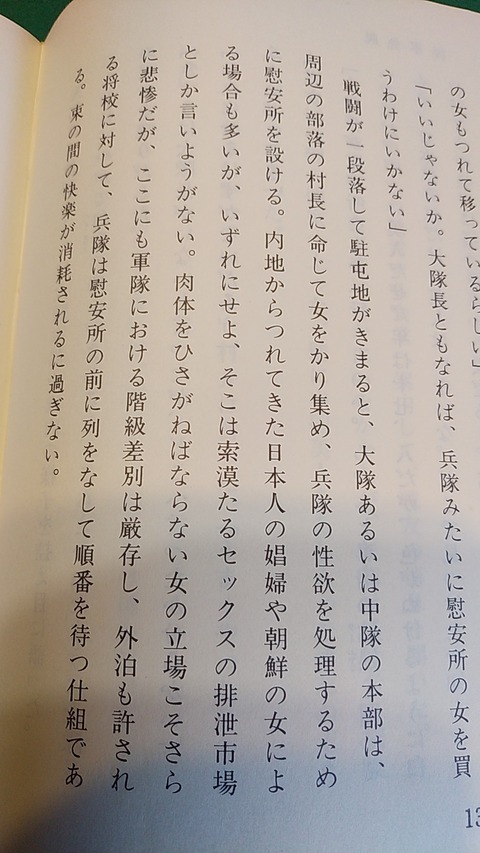 の女もつれて移っているらしい」
「いいじゃないか。大隊長ともなれば、兵隊みたいに慰安所の女を買
うわけにいかない」
戦闘が一段落して駐屯地がきまると、大隊あるいは中隊の本部は、
周辺の部落の村長に命じて女をかり集め、兵隊の性欲を処理するため
に慰安所を設ける。内地からつれてきた日本人の娼婦や朝鮮の女によ
る場合も多いが、いずれにせよ、そこは索漠たるセックスの排泄市場
としか言いようがない。肉体をひさがねばならない女の立場こそさら
に悲惨だが、ここにも軍隊における階級差別は厳存し、外泊も許され
る将校に対して、兵隊は慰安所の前に列をなして順番を待つ仕組であ
る。束の間の快楽が消耗されるに過ぎない。